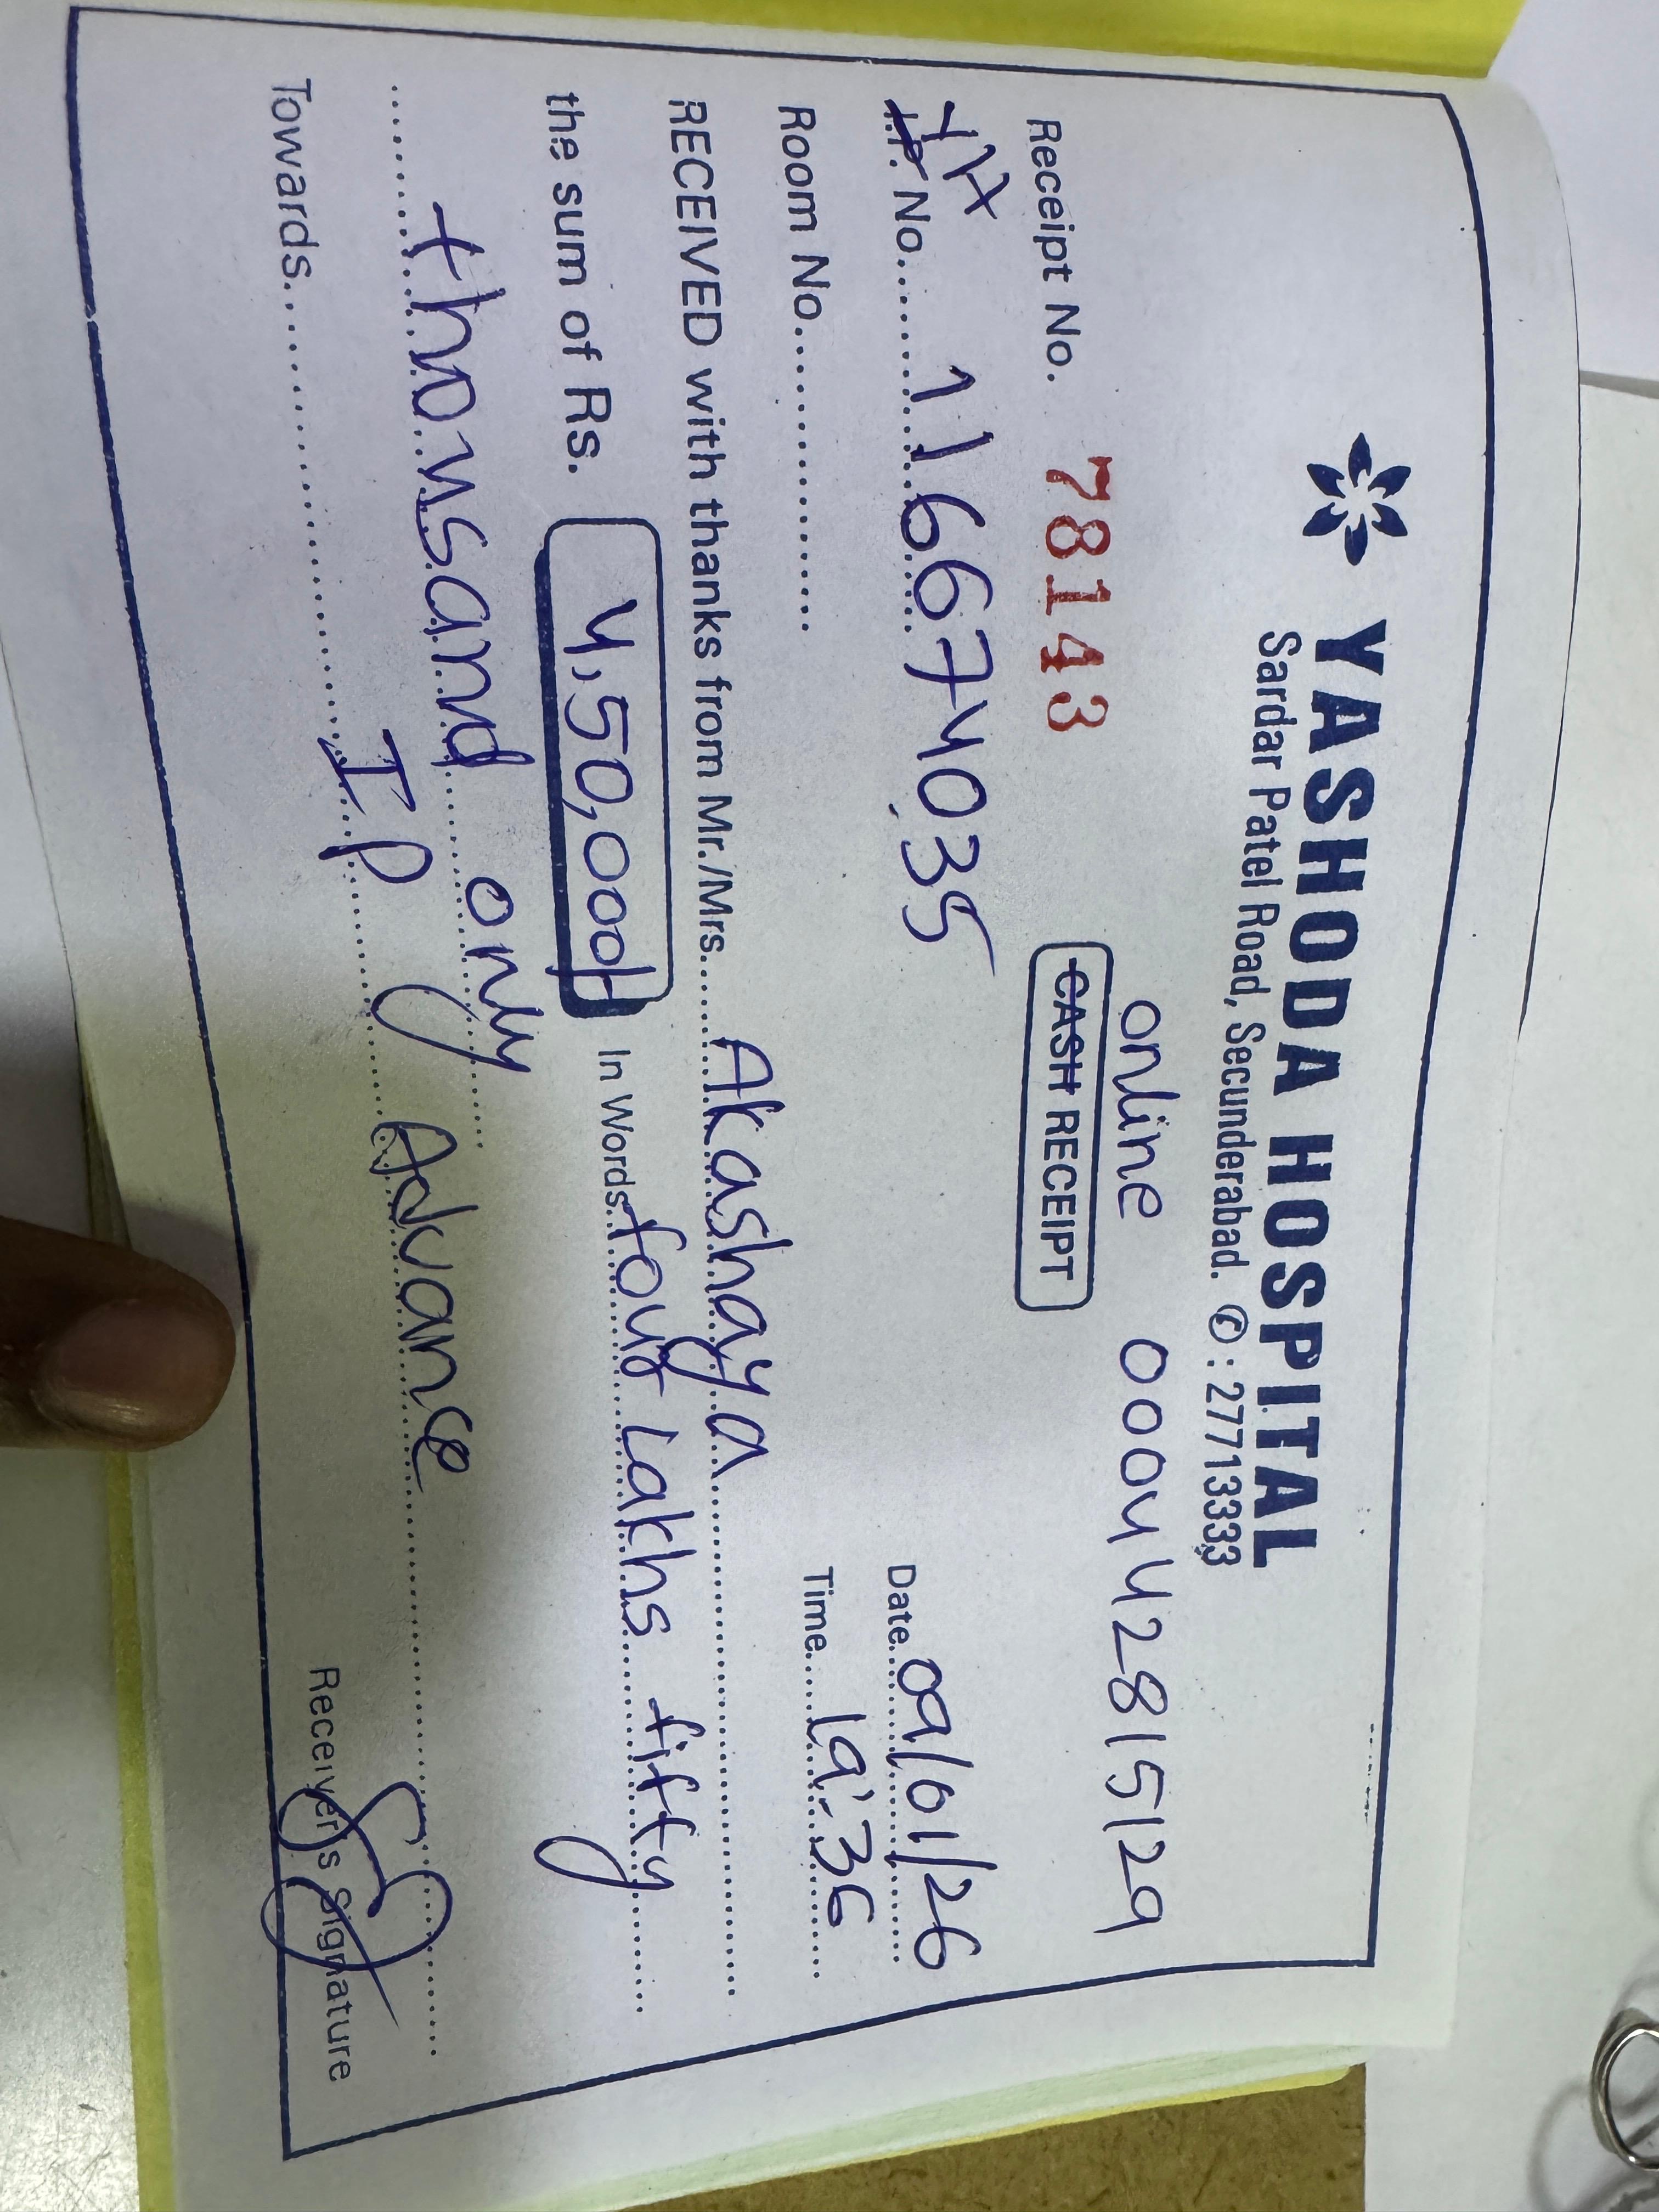 YASHODA HOSPITAL
Sardar Patel Road, Secunderabad. ✆ : 27713333
online 000442815129
Receipt No. 78143 CASH RECEIPT
No. 116674035 Date 09/01/26
Room No. Time 19:36
RECEIVED with thanks from Mr./Mrs. Akashaya
the sum of Rs. 4,50,000/- In Words four Lakhs fifty
thousand only
Towards IP Advance
Receiver's Signature